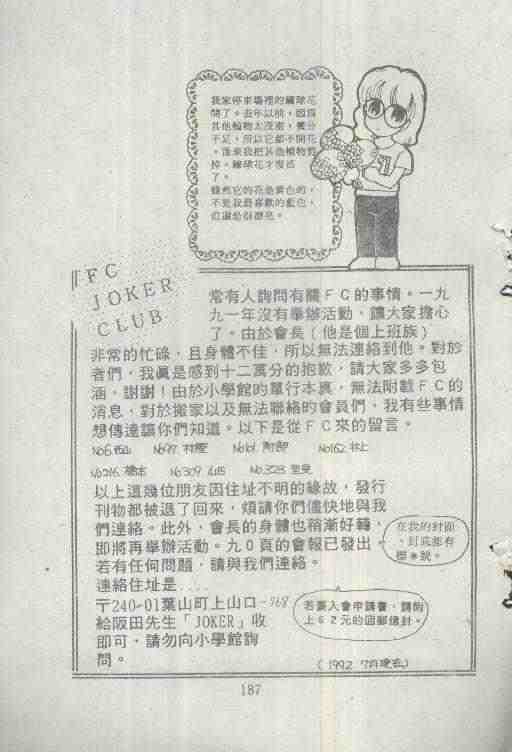 我家停車場裡的繡球花
開了。去年以前，因為
其他植物太茂密，養分
不足，所以它都不開花
。後來我把其他植物剪
掉。繡球花才復活
了。
雖然它的花是黃色的，
不是我最喜歡的藍色，
但還是很漂亮。
FC
JOKER
CLUB
常有人詢問有關ＦＣ的事情。一九
九一年沒有舉辦活動，讓大家擔心
了。由於會長（他是個上班族）
非常的忙碌，且身體不佳，所以無法連絡到他。對於
者們，我眞是感到十二萬分的抱歉，請大家多多包
涵，謝謝！由於小學館的單行本裏，無法附載ＦＣ的
消息，對於搬家以及無法聯絡的會員們，我有些事情
想傳達讓你們知道。以下是從ＦＣ來的留言。
No6.西山 No97. 村 No161. 阿部 No162. 井上
No216. 橋本 No309. 山 No.328. 里見
以上這幾位朋友因住址不明的緣故，發行
刊物都被退了回來，煩請你們儘快地與我
們連絡。此外，會長的身體也稍漸好轉，
即將再舉辦活動。九０頁的會報已發出，
若有任何問題，請與我們連絡。
在我的封面
、封底都有
標＊號。
連絡住址是....
〒240-01葉山町上山口-968
給阪田先生「JOKER」收
即可，請勿向小學館詢
問。
若要入會申請書，請附
上６２元的回郵信封。
（1992 7月現在）
187